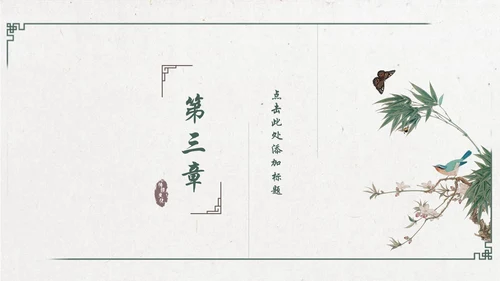 第三章
点击此处添加标题